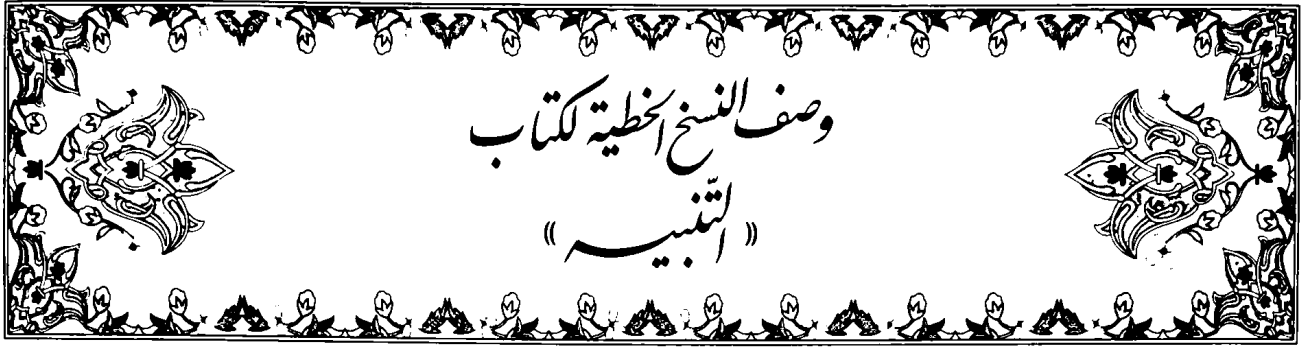 وصف النسخ الخطية لكتاب
« التّنبيه »